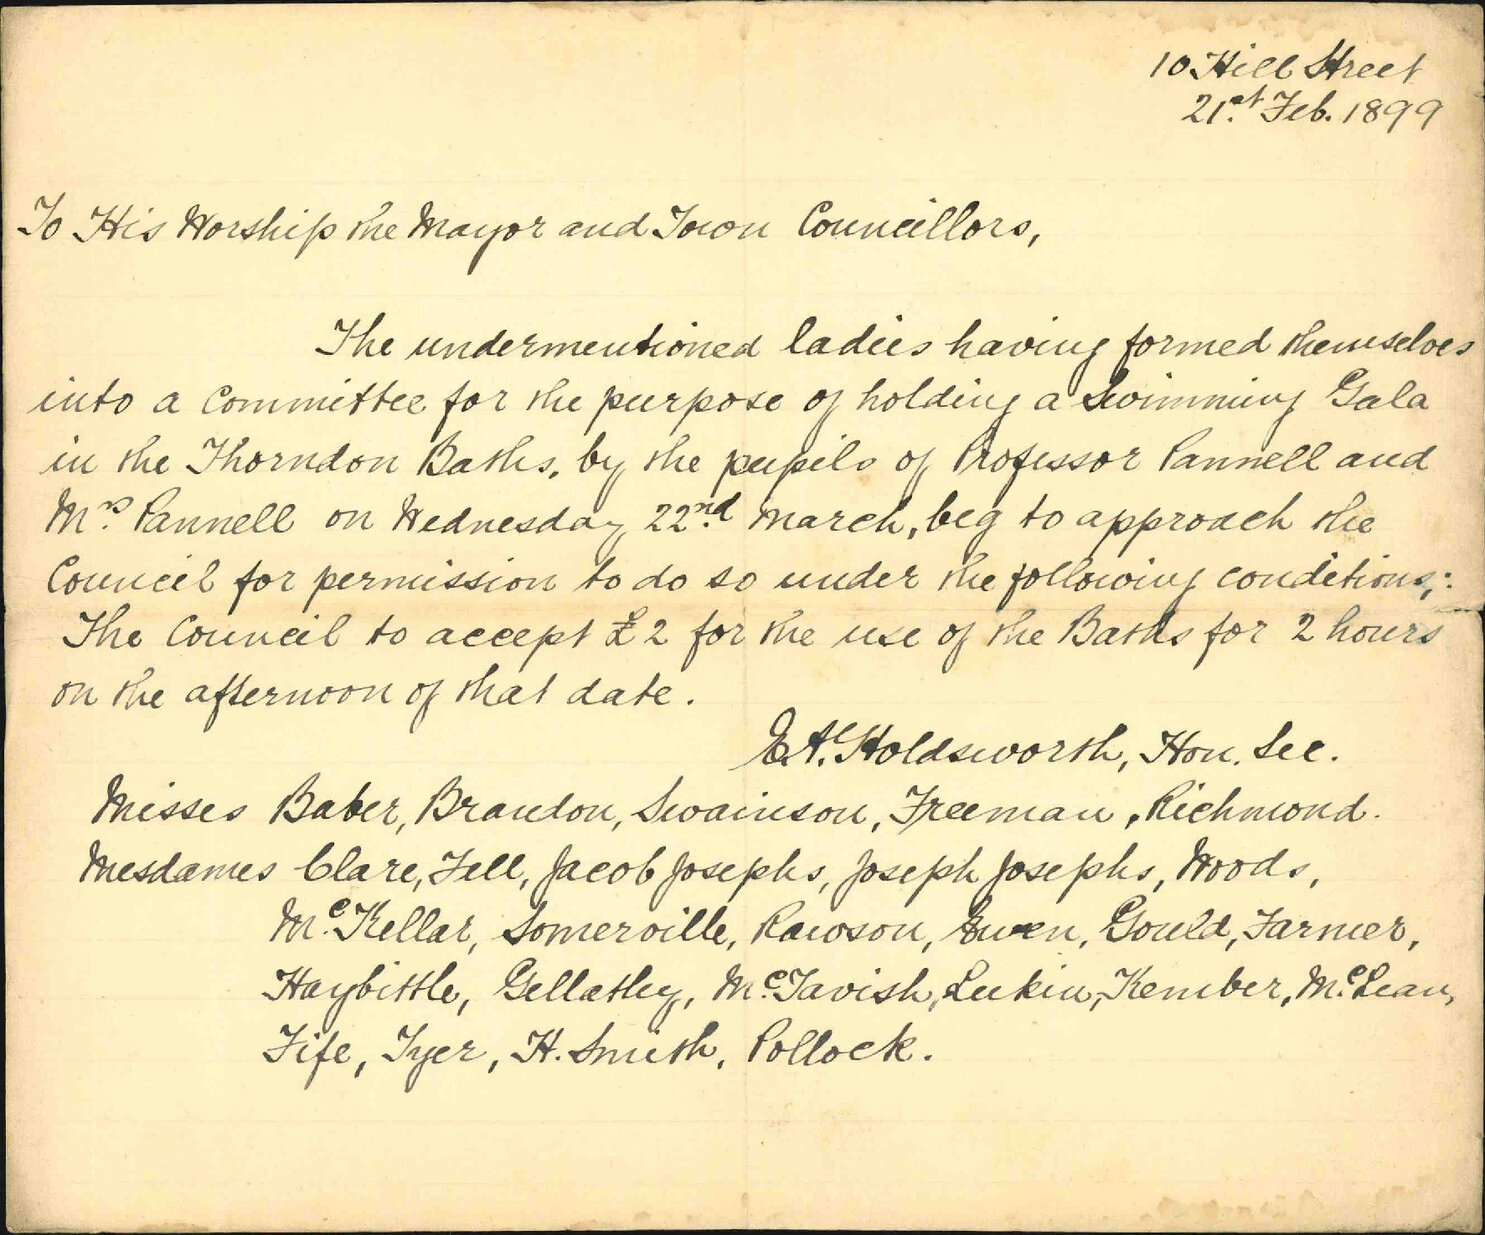 10 Hill Street
21st Feb. 1899
To His Worship the Mayor and Town Councillors,
The undermentioned ladies having formed themselves
into a committee for the purpose of holding a Swimming Gala
in the Thorndon Baths, by the pupils of Professor Pannell and
Mrs. Pannell on Wednesday 22nd March, beg to approach the
Council for permission to do so under the following conditions;:
The Council to accept £2 for the use of the Baths for 2 hours
on the afternoon of that date.
E.A. Holdsworth, Hon. Sec.
Misses Baber, Brandon, Swainson, Freeman, Richmond.
Mesdames Clare, Fell, Jacob Josephs, Joseph Josephs, Woods,
Mc.Kellar, Somerville, Rawson, Ewen, Gould, Farmer,
Haybittle, Gellatly, Mc.Tavish, Luckin, Kember, Mc.Lean,
Fife, Tyer, H. Smith, Pollock.